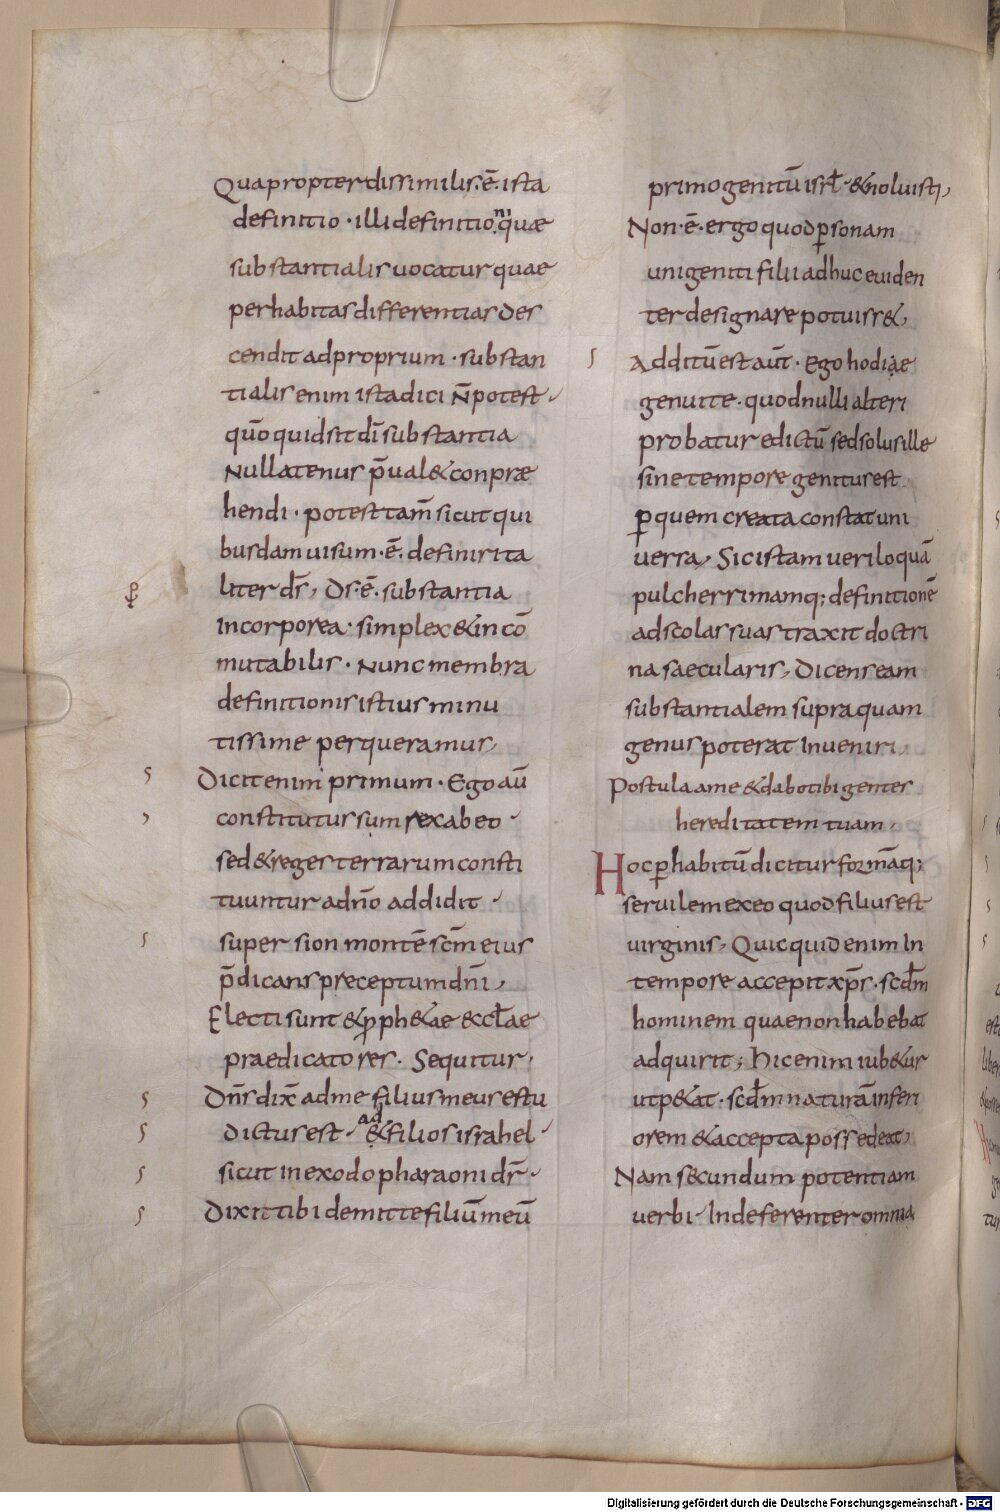 Quapropter dissimilis·ē·ista
definitio·illi definitioni quae
substantialis uocatur quae
per habitas differentias des
cendit ad proprium·substan
tialis enim ista dici n̄ potest·
qūo quid sit dī substantia
Nullatenus p̄ual& conprae
hendi·potest tam̄ sicut qui
busdam uisum·ē·definir ita
liter dr̄, Ds·ē·substantia
Incorporea·simplex & in cō
mutabilis·Nunc membra
definitionis istius minu
tissime perqueramus,
Dicit enim primum·Ego aū
constitutus sum rex ab eo·
sed & reges terrarum consti
tuuntur a dn̄o addidit·
super sion montē sc̄m eius
p̄dicans preceptum dn̄i,
Electi sunt & ꝓph&ae & eccl̄ae
praedicatores· Sequitur,
Dn̄s dix̄ ad me filius meus es tu
dictus est· ad & filios israhel·
sicut in exodo pharaoni dr̄·
Dixit tibi demitte filiū meū
primogenitū isrl̄·& noluisti,
Non·ē·ergo quod ꝑsonam
unigeniti filii adhuc euiden
ter designare potuiss&,
Additū est aūt·Ego hodiae
genui te·quod nulli alteri
probatur edictū sed solus ille
sine tempore genitus est
ꝑ quem creata constat uni
uersa, Sic istam ueriloquā
pulcherrimamq; definitionē
ad scolas suas traxit doctri
na saecularis, Dicens eam
substantialem supra quam
genus poterat Inueniri,
Postula a me & dabo tibi gentes
hereditatem tuam,
Hoc ꝑ habitū dicitur formāq;
seruilem ex eo quod filius est
uirginis, Quicquid enim In
tempore accepit xp̄s·scd̄m
hominem quae non habebat
adquirit; Hic enim iub&ur
ut p&at·scd̄m naturā inferi
orem & accepta possedeat,
Nam secundum potentiam
uerbi· Indeferenter omnia
Digitalisierung gefördert durch die Deutsche Forschungsgemeinschaft - DFG